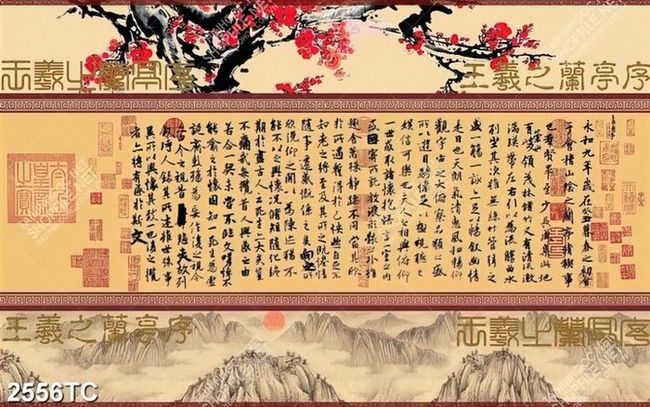 王羲之蘭亭序
王羲之蘭亭序
永和九年歲在癸丑暮春之初會
于會稽山陰之蘭亭脩稧事
也羣賢畢至少長咸集此地
有崇山峻領茂林脩竹又有清流激
湍暎帶左右引以為流觴曲水
列坐其次雖無絲竹管弦之
盛一觴一詠亦足以暢敘幽情
是日也天朗氣清惠風和暢仰
觀宇宙之大俯察品類之盛
所以遊目騁懷足以極視聽之
娛信可樂也夫人之相與俯仰
一世或取諸懷抱悟言一室之內
或因寄所託放浪形骸之外雖
趣舍萬殊靜躁不同當其欣
於所遇蹔得於己怏然自足不
知老之將至及其所之既惓情
隨事遷感慨係之矣向之所
欣俛仰之閒以為陳跡猶不
能不以之興懷況脩短隨化終
期於盡古人云死生亦大矣豈
不痛哉每攬昔人興感之由
若合一契未嘗不臨文嗟悼不
能喻之於懷固知一死生為虛
誕齊彭殤為妄作後之視今
亦由今之視昔悲夫故列
敘時人錄其所述雖世殊事
異所以興懷其致一也後之攬
者亦將有感於斯文
王羲之蘭亭序
王羲之蘭亭序
2556TC